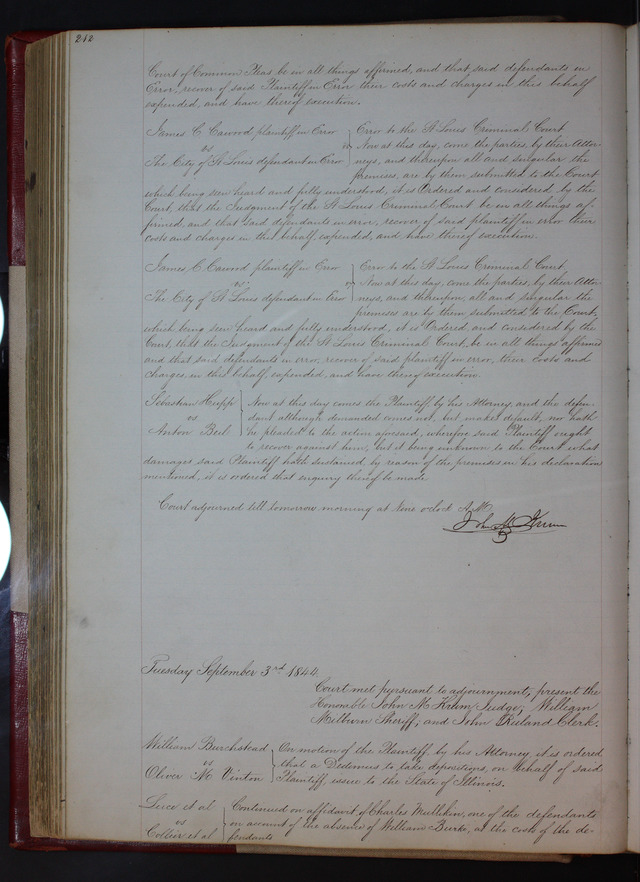 212
Court of Common Pleas be in all things affirmed, and that said defendants in
Error, recover of said Plaintiff in Error their costs and charges in this behalf
expended, and have thereof execution.
James C Cawood plaintiff in Error } Error to the St Louis Criminal Court
vs Now at this day, come the parties, by their Attor-
The City of St Louis defendant in Error neys, and thereupon all and singular the
premises, are by them submitted to the Court
which being seen heard and fully understood, it is Ordered and considered by the
Court, that the Judgment of the St Louis Criminal Court be in all things af-
firmed, and that said defendants in error, recover of said plaintiff in error their
costs and charges in this behalf expended, and have thereof execution.
James C Cawood plaintiff in Error } Error to the St Louis Criminal Court
vs Now at this day, come the parties, by their Attor-
The City of St Louis defendant in Error neys, and thereupon, all and singular the
premises are by them submitted to the Court,
which being seen heard and fully understood, it is Ordered and considered by the
Court, that the Judgment of the St Louis Criminal Court, be in all things affirmed
and that said defendants in error, recover of said plaintiff in error, their costs and
charges, in this behalf expended, and have thereof execution.
Sebastian Hupp } Now at this day comes the Plaintiff by his Attorney, and the defen-
vs dant although demanded comes not, but makes default, nor hath
Anton Beil he pleaded to the action aforesaid, wherefore said Plaintiff ought
to recover against him, but it being unknown to the Court what
damages said Plaintiff hath sustained, by reason of the premises in his declaration
mentioned, it is ordered that enquiry thereof be made
Court adjourned till tomorrow morning at Nine o'clock A.M.
John M Krum
Tuesday September 3rd 1844
Court met pursuant to adjournment; present the
Honorable John M Krum Judge; William
Milburn Sheriff; and John Ruland Clerk.
William Burchstead } On motion of the Plaintiff, by his Attorney it is ordered
vs that a Dedimus to take depositions, on behalf of said
Oliver M Vinton Plaintiff, issue to the State of Illinois.
et al } Continued on affidavit of Charles Mullikin, one of the defendants
vs on account of the absence of William Burke, at the costs of the de-
Collier et al fendants